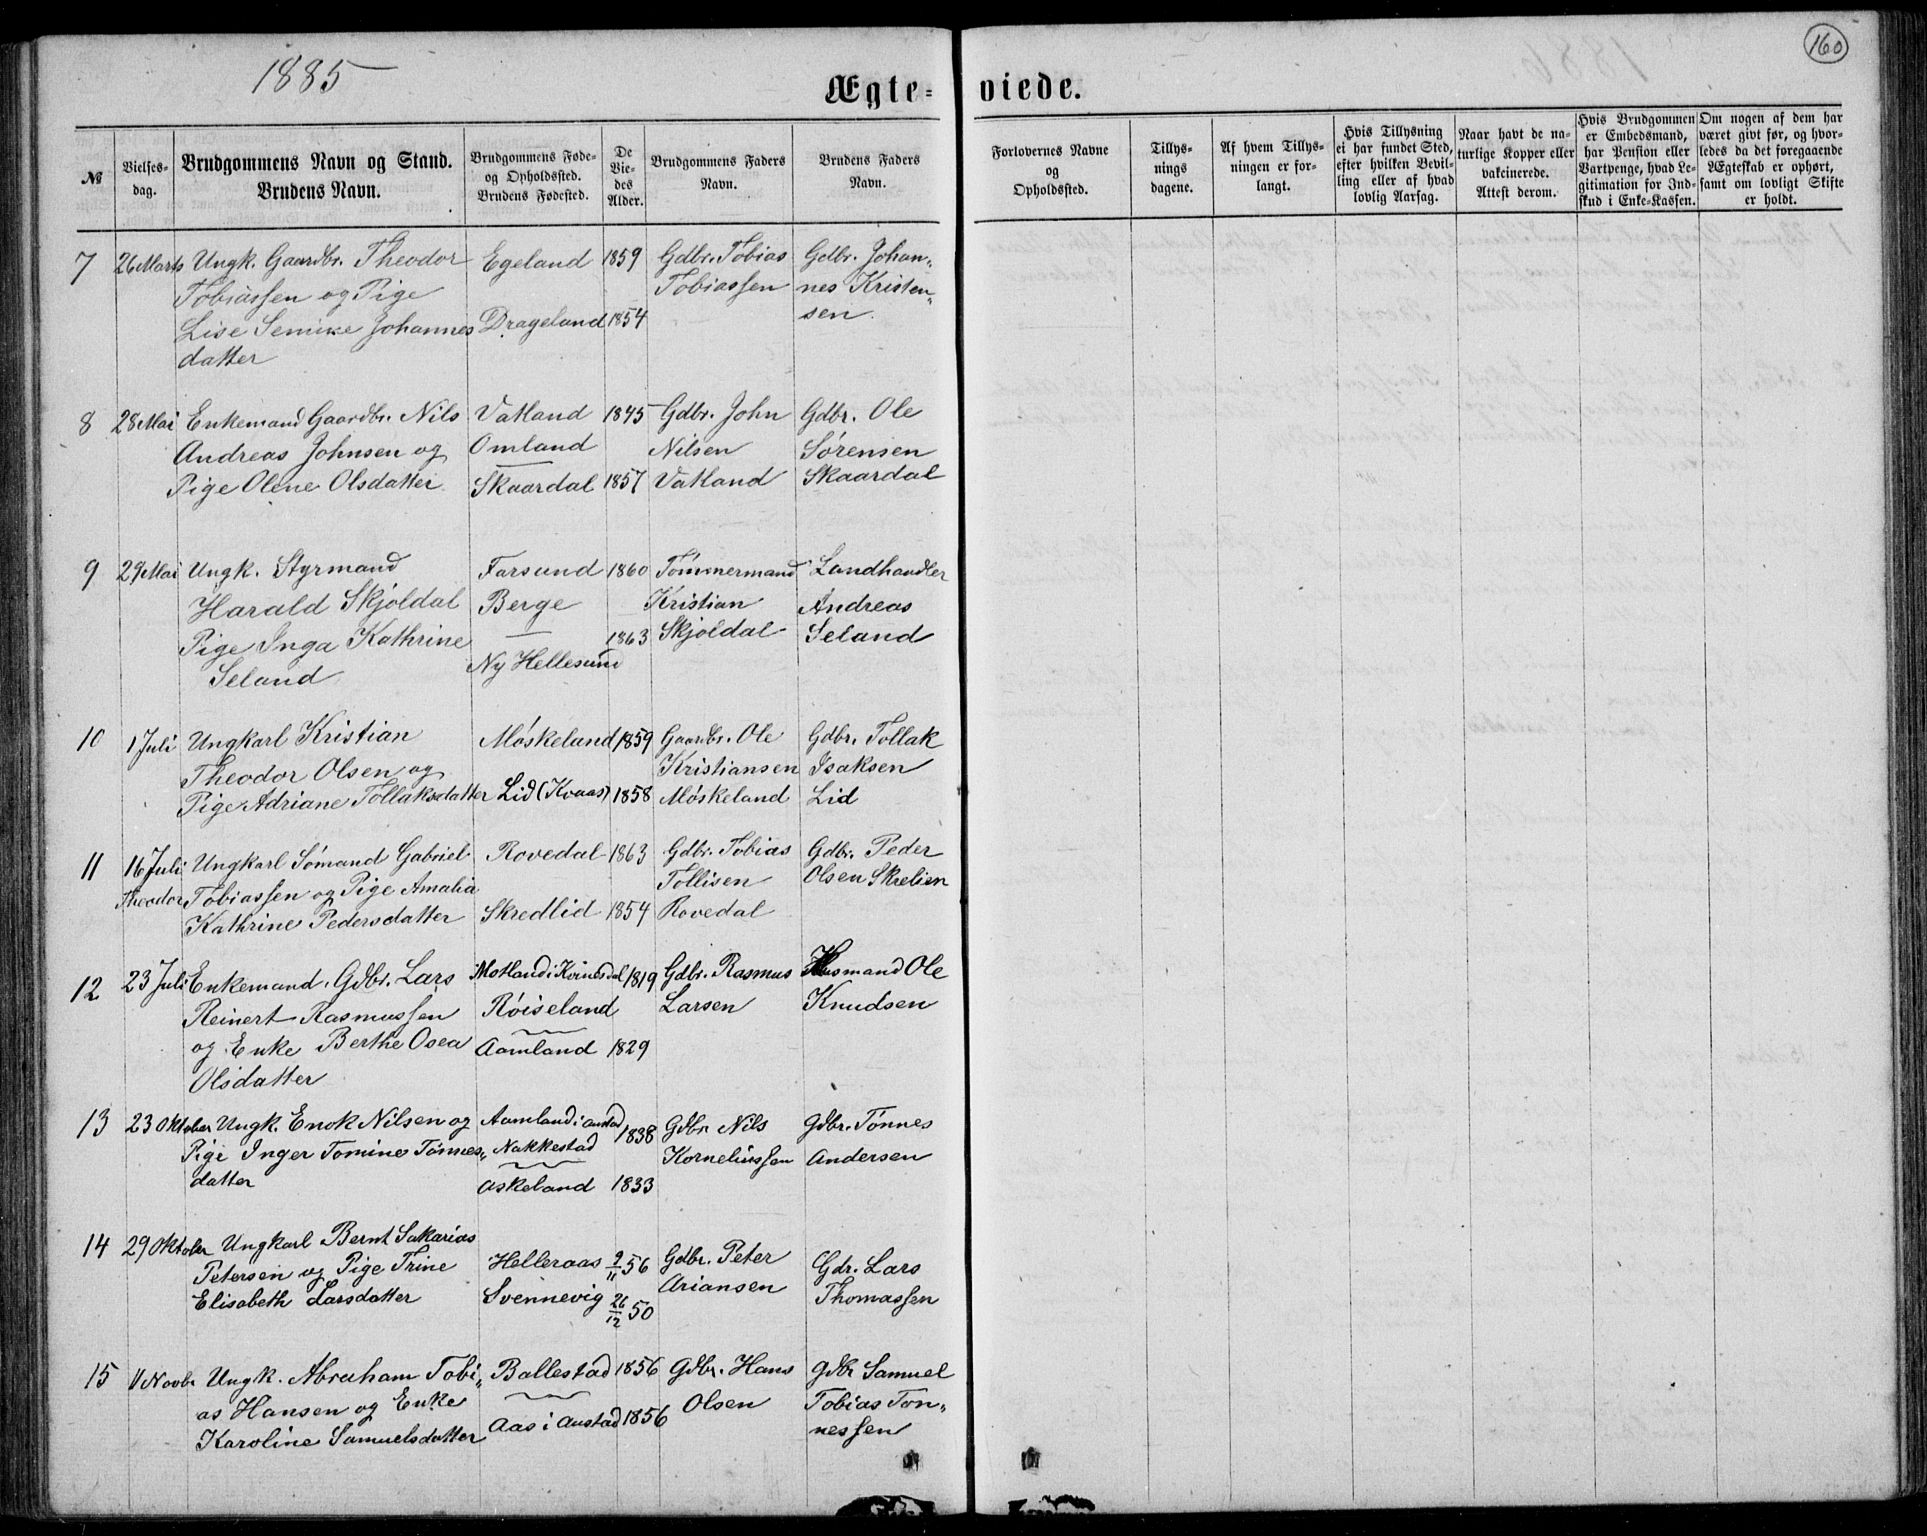 1885
160
Ægte-viede.
№
Vielses-
dag.
Brudgommens Navn og Stand.
Brudens Navn.
Brudgommens Føde-
og Opholdssted.
Brudens Fødested.
De
Vie-
des
Alder.
Brudgommens Faders
Navn.
Brudens Faders
Navn.
Forlovernes Navne
og
Opholdssted.
Tillys-
nings
dagene.
Af hvem Tillys-
ningen er for-
langt.
Hvis Tillysning
ei har fundet Sted,
efter hvilken Bevil-
ling eller af hvad
lovlig Aarsag.
Naar havt de na-
turlige Kopper eller
vakcinerede.
Attest derom.
Hvis Brudgommen
er Embedsmand,
har Pension eller
Vartpenge, hvad Le-
gitimation for Ind-
skud i Enke-Kassen.
Om nogen af dem har
været givt før, og hvor-
ledes da det foregaaende
Ægteskab er ophørt,
samt om lovligt Skifte
er holdt.
7 26 Marts Ungk. Gaardbr. Theodor Egeland 1859 Gdbr. Tobias Gdbr. Johan„
Tobiassen og Pige Tobiassen nes Kristen„
Lise Semine Johannes Drageland 1854 sen.
datter
8 28 Mai Enkemand Gaardbr. Nils Vatland 1845 Gdbr. John Gdbr. Ole
Andreas Johnsen og Omland Nilsen Sørensen
Pige Olene Olsdatter Skaardal 1857 Vatland Skaardal
9 29 Mai Ungk. Styrmand Farsund 1860 Tømmermand Landhandler
Harald Skjoldal Berge Kristian Andreas
Pige Inga Kathrine 1863 Skjoldal Seland
Seland Ny Hellesund
10 1 Juli Ungkarl Kristian Møskeland 1859 Gaardbr. Ole Gdbr. Tollak
Theodor Olsen og Kristiansen Isaksen
Pige Adriane Tollaksdatter Lid (Kvaas) 1858 Møskeland Lid
11 16 Juli Ungkarl Sømand Gabriel Rovedal 1863 Gdbr. Tobias Gdbr. Peder
Theodor Tobiassen og Pige Amalia Tollisen Olsen Skrelien
Kathrine Pedersdatter Skredlid 1854 Rovedal
12 23 Juli Enkemand. Gdbr. Lars Motland i Kvinesdal 1819 Gdbr. Rasmus Husmand Ole
Reinert Rasmussen Røiseland Larsen Knudsen
og Enke Berthe Osea Aamland 1829
Olsdatter
13 23 Oktober Ungk. Enok Nilsen og Aamland i Austad 1838 Gdbr Nils Gdbr. Tønnes
Pige Inger Tomine Tønnes„ Nakkestad Korneliussen Andersen
datter Askeland 1833
14 29 Oktober Ungkarl Bernt Sakarias
Petersen og Pige Trine Helleraas 9/11 56 Gdbr. Peter Gdr. Lars
Elisabeth Larsdatter Svennevig 26/12 50 Ariansen Thomassen
15 11 Novbr Ungk. Abraham Tobi„ Ballestad 1856 Gdbr. Hans Gdbr Samuel
as Hansen og Enke Olsen Tobias Tøn„
Karoline Samuelsdatter Aas i Austad 1856 nessen